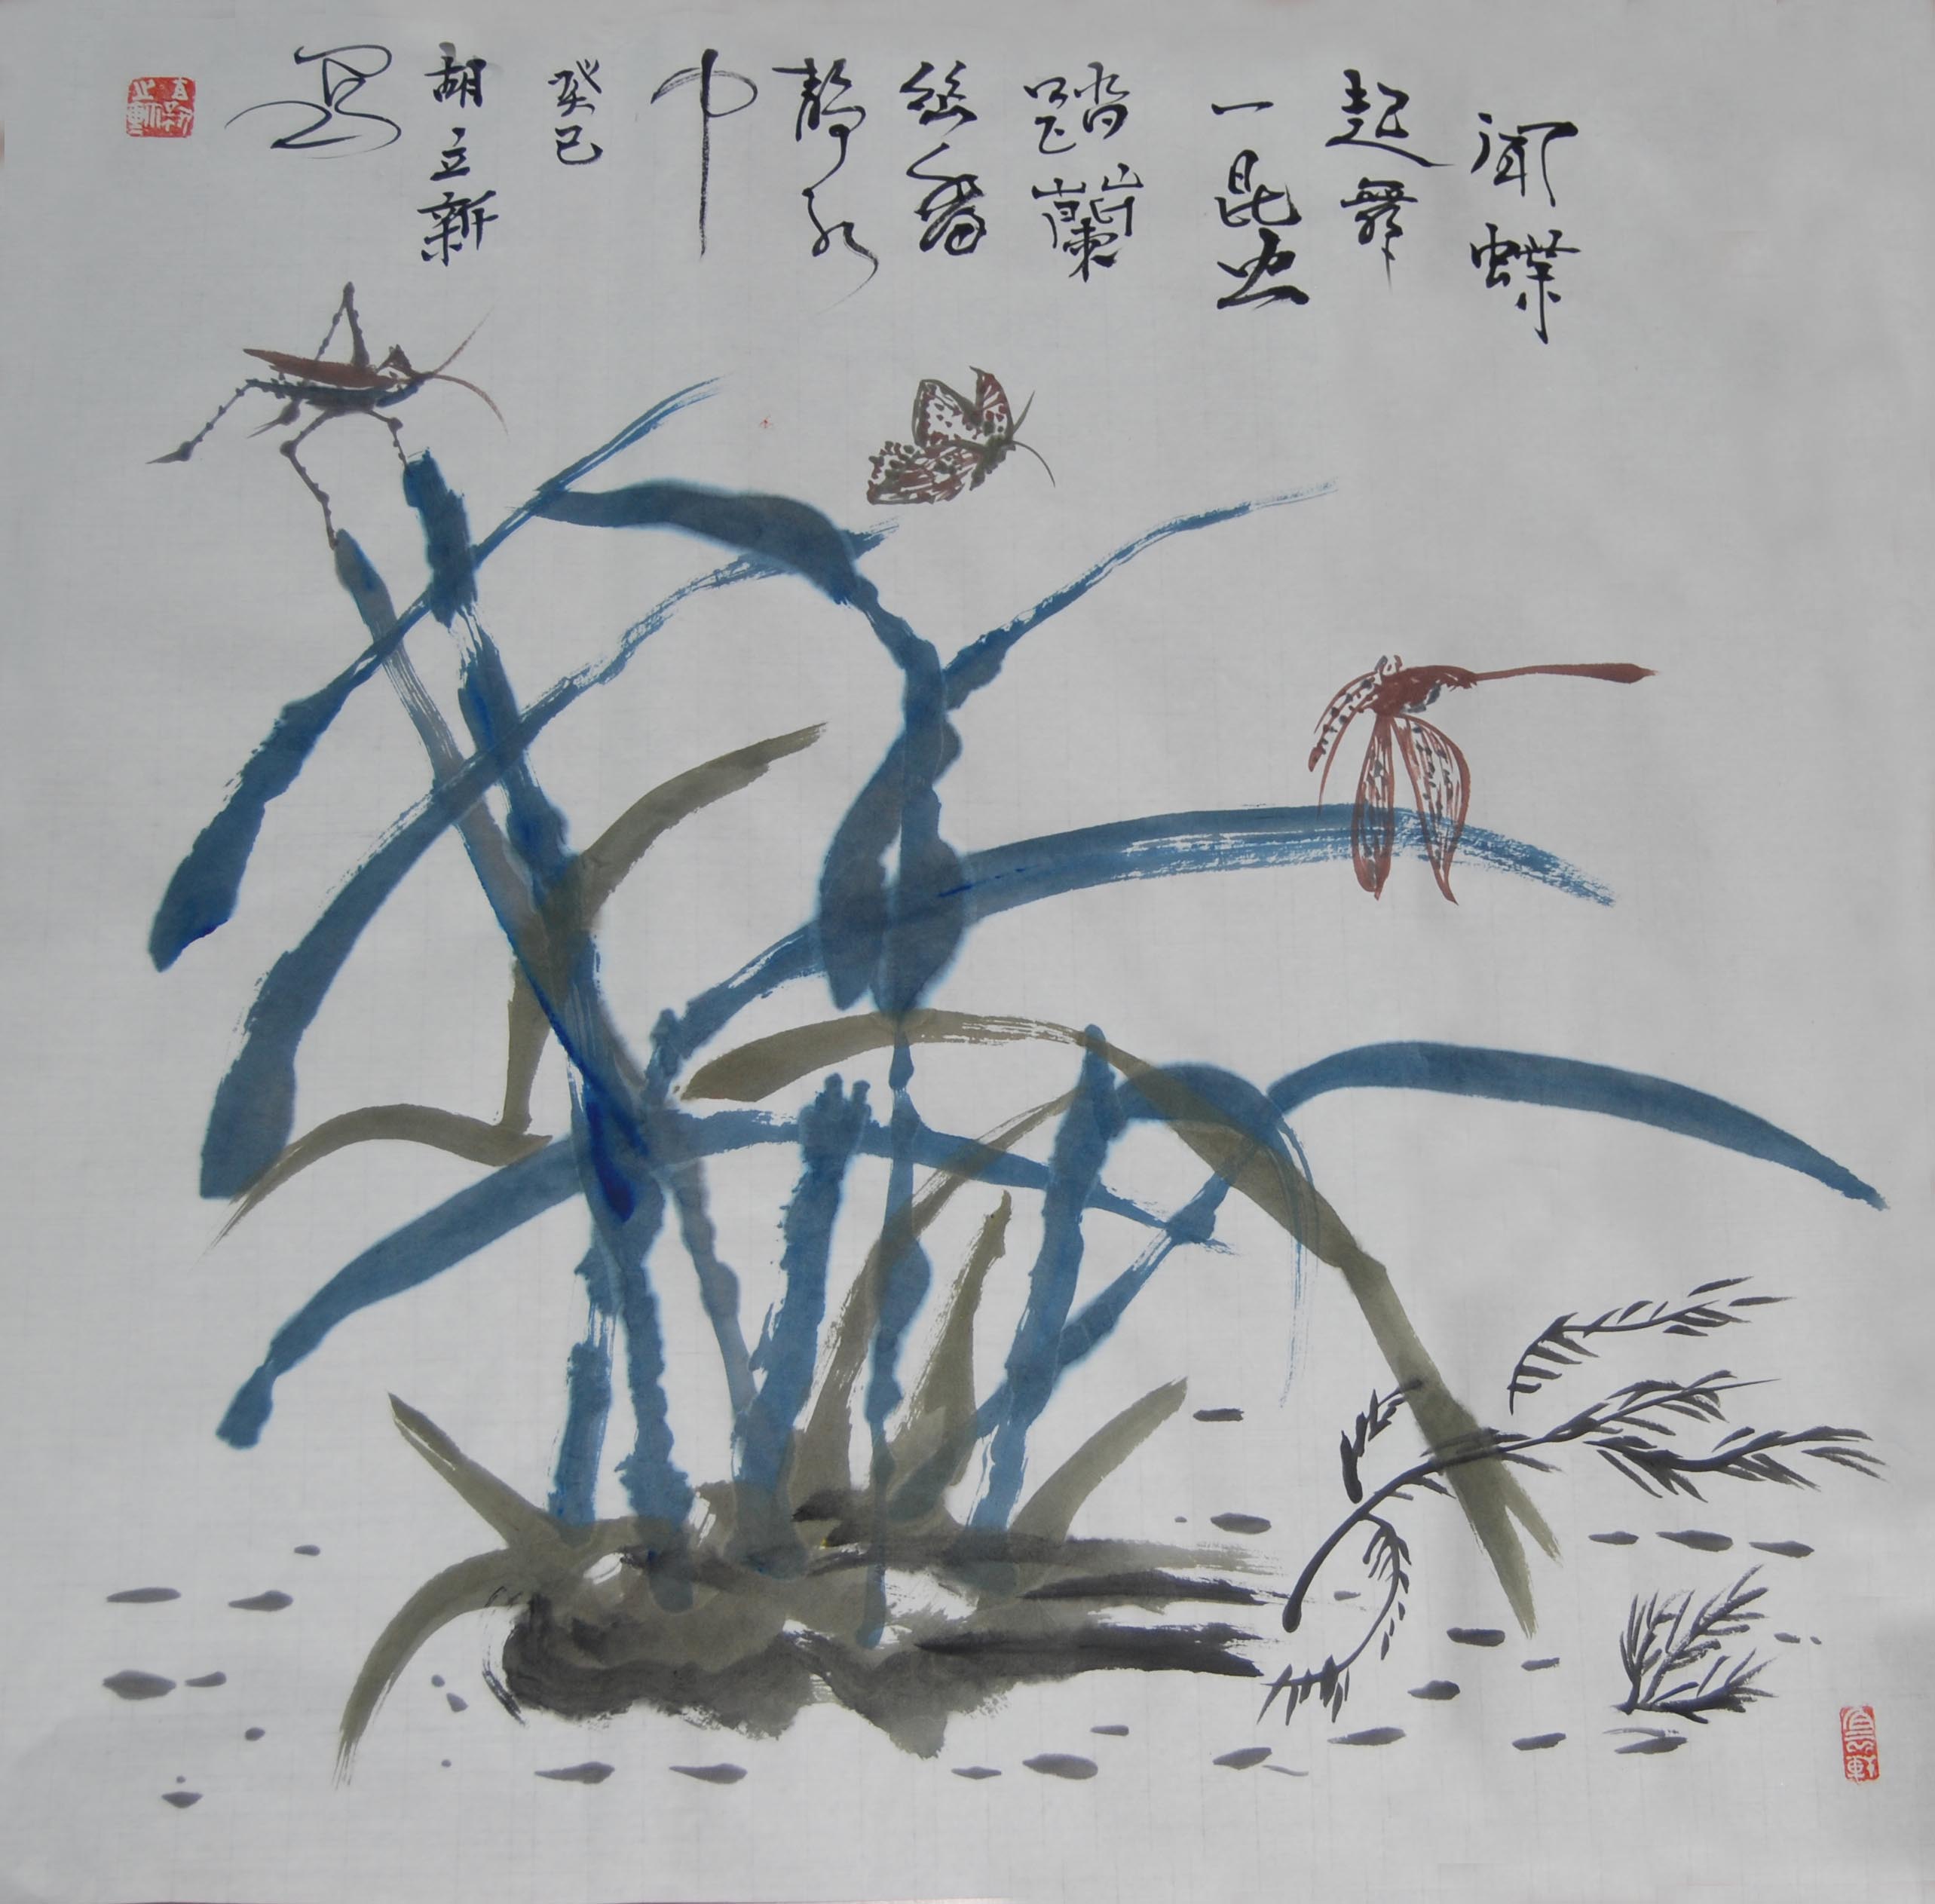 闻蝶
起舞
一昆虫
踏兰
丝香
静永
中
癸巳
胡立新
写